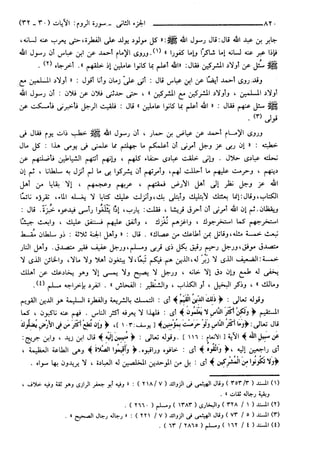 ٨٢٠ الجزء الثانى ـ سورة الروم: الآيات (٣٠ ـ ٣٢)
جابر بن عبد الله قال: قال رسول الله ﷺ: « كل مولود يولد على الفطرة، حتى يعرب عنه لسانه،
فإذا عبر عنه لسانه إما شاكرًا وإما كفورا » (١). وروى الإمام أحمد عن ابن عباس أن رسول الله
ﷺ سئل عن أولاد المشركين فقال: « الله أعلم بما كانوا عاملين إذ خلقهم ». أخرجاه (٢).
وقد روى أحمد أيضًا عن ابن عباس قال: أتى علىّ زمان وأنا أقول: « أولاد المسلمين مع
أولاد المسلمين، وأولاد المشركين مع المشركين »، حتى حدثنى فلان عن فلان: أن رسول الله
ﷺ سئل عنهم فقال: « الله أعلم بما كانوا عاملين » قال: فلقيت الرجل فأخبرنى فأمسكت عن
قولى (٣).
وروى الإمــام أحمد عن عياض بن حمار، أن رسول الله ﷺ خطب ذات يوم فقال فى
خطبته: « إن ربى عز وجل أمرنى أن أعلمكم ما جهلتم مما علمنى فى يومى هذا: كل مال
نحلته عبادى حلال. وإنى خلقت عبادى حنفاء كلهم، وإنهم أتتهم الشياطين فأضلتهم عن
دينهم، وحرمت عليهم ما أحللت لهم، وأمرتهم أن يشركوا بى ما لم أنزل به سلطانا، ثم إن
الله عز وجل نظر إلى أهل الأرض فمقتهم، عربهم وعجمهم، إلا بقايا من أهل
الكتاب، وقال: إنما بعثتك لأبتليك وأبتلى بك، وأنزلت عليك كتابا لا يغسله الماء، تقرؤه نائمًا
ويقظان. ثم إن الله أمرنى أن أحرق قريشًا، فقلت: يارب، إذًا يَثْلَغُوا رأسى فيدعوه خُبْزَةً. قال:
استخرجهم كما استخرجوك، واغزهم نُغْزك، وأنفق عليهم فسننفق عليك، وابعث جيشًا
نبعث خمسة مثله، وقاتل بمن أطاعك من عصاك». قال: « وأهل الجنة ثلاثة: ذو سلطان مُقسط
متصدق موفق، ورجل رحيم رقيق بكل ذى قربى ومسلم، ورجل عفيف فقير متصدق. وأهل النار
خمسة: الضعيف الذى لا زَبْر له، الذين هم فيكم تَبَعًا، لا يبتغون أهلا ولا مالا، والخائن الذى لا
يخفى له طمع وإن دق إلا خانه، ورجل لا يصبح ولا يمسى إلا وهو يخادعك عن أهلك
ومالك »، وذكر البخيل، أو الكذاب، والشنظير: الفحاش. انفرد بإخراجه مسلم (٤).
وقوله تعالى: ﴿ ذَلِكَ الدِّينُ الْقَيِّمُ ﴾ أى: التمسك بالشريعة والفطرة السليمة هو الدين القويم
المستقيم ﴿ وَلَكِنَّ أَكْثَرَ النَّاسِ لا يَعْلَمُونَ ﴾ أى: فلهذا لا يعرفه أكثر الناس. فهم عنه ناكبون، كما
قال تعالى: ﴿ وَمَا أَكْثَرُ النَّاسِ وَلَوْ حَرَصْتَ بِمُؤْمِنِينَ ﴾ [يوسف: ١٠٣]، ﴿ وَإِن تُطِعْ أَكْثَرَ مَن فِى الأَرْضِ يُضِلُّوكَ
عَن سَبِيلِ اللَّهِ ﴾ الآية [الأنعام: ١١٦]. وقوله تعالى: ﴿ مُنِيبِينَ إِلَيْهِ ﴾ قال ابن زيد، وابن جريج:
أى راجعين إليه، ﴿ وَاتَّقُوهُ ﴾ أى: خافوه وراقبوه. ﴿ وَأَقِيمُوا الصَّلاةَ ﴾ وهى الطاعة العظيمة،
﴿ وَلا تَكُونُوا مِنَ الْمُشْرِكِينَ ﴾ أى: بل من الموحدين المخلصين له العبادة، لا يريدون بها سواه.
(١) المسند (٣/ ٣٥٣) وقال الهيثمى فى الزوائد (٧/ ٢١٨): « وفيه أبو جعفر الرازى وهو ثقة وفيه خلاف،
وبقية رجاله ثقات ».
(٢) المسند (١/ ٣٢٨) والبخارى (١٣٨٣) ومسلم (٢٦٦٠).
(٣) المسند (٥/ ٧٣) وقال الهيثمى فى الزوائد (٧/ ٢٢١): « رجاله رجال الصحيح ».
(٤) المسند (٤/ ١٦٢) ومسلم (٢٨٦٥/ ٦٣).